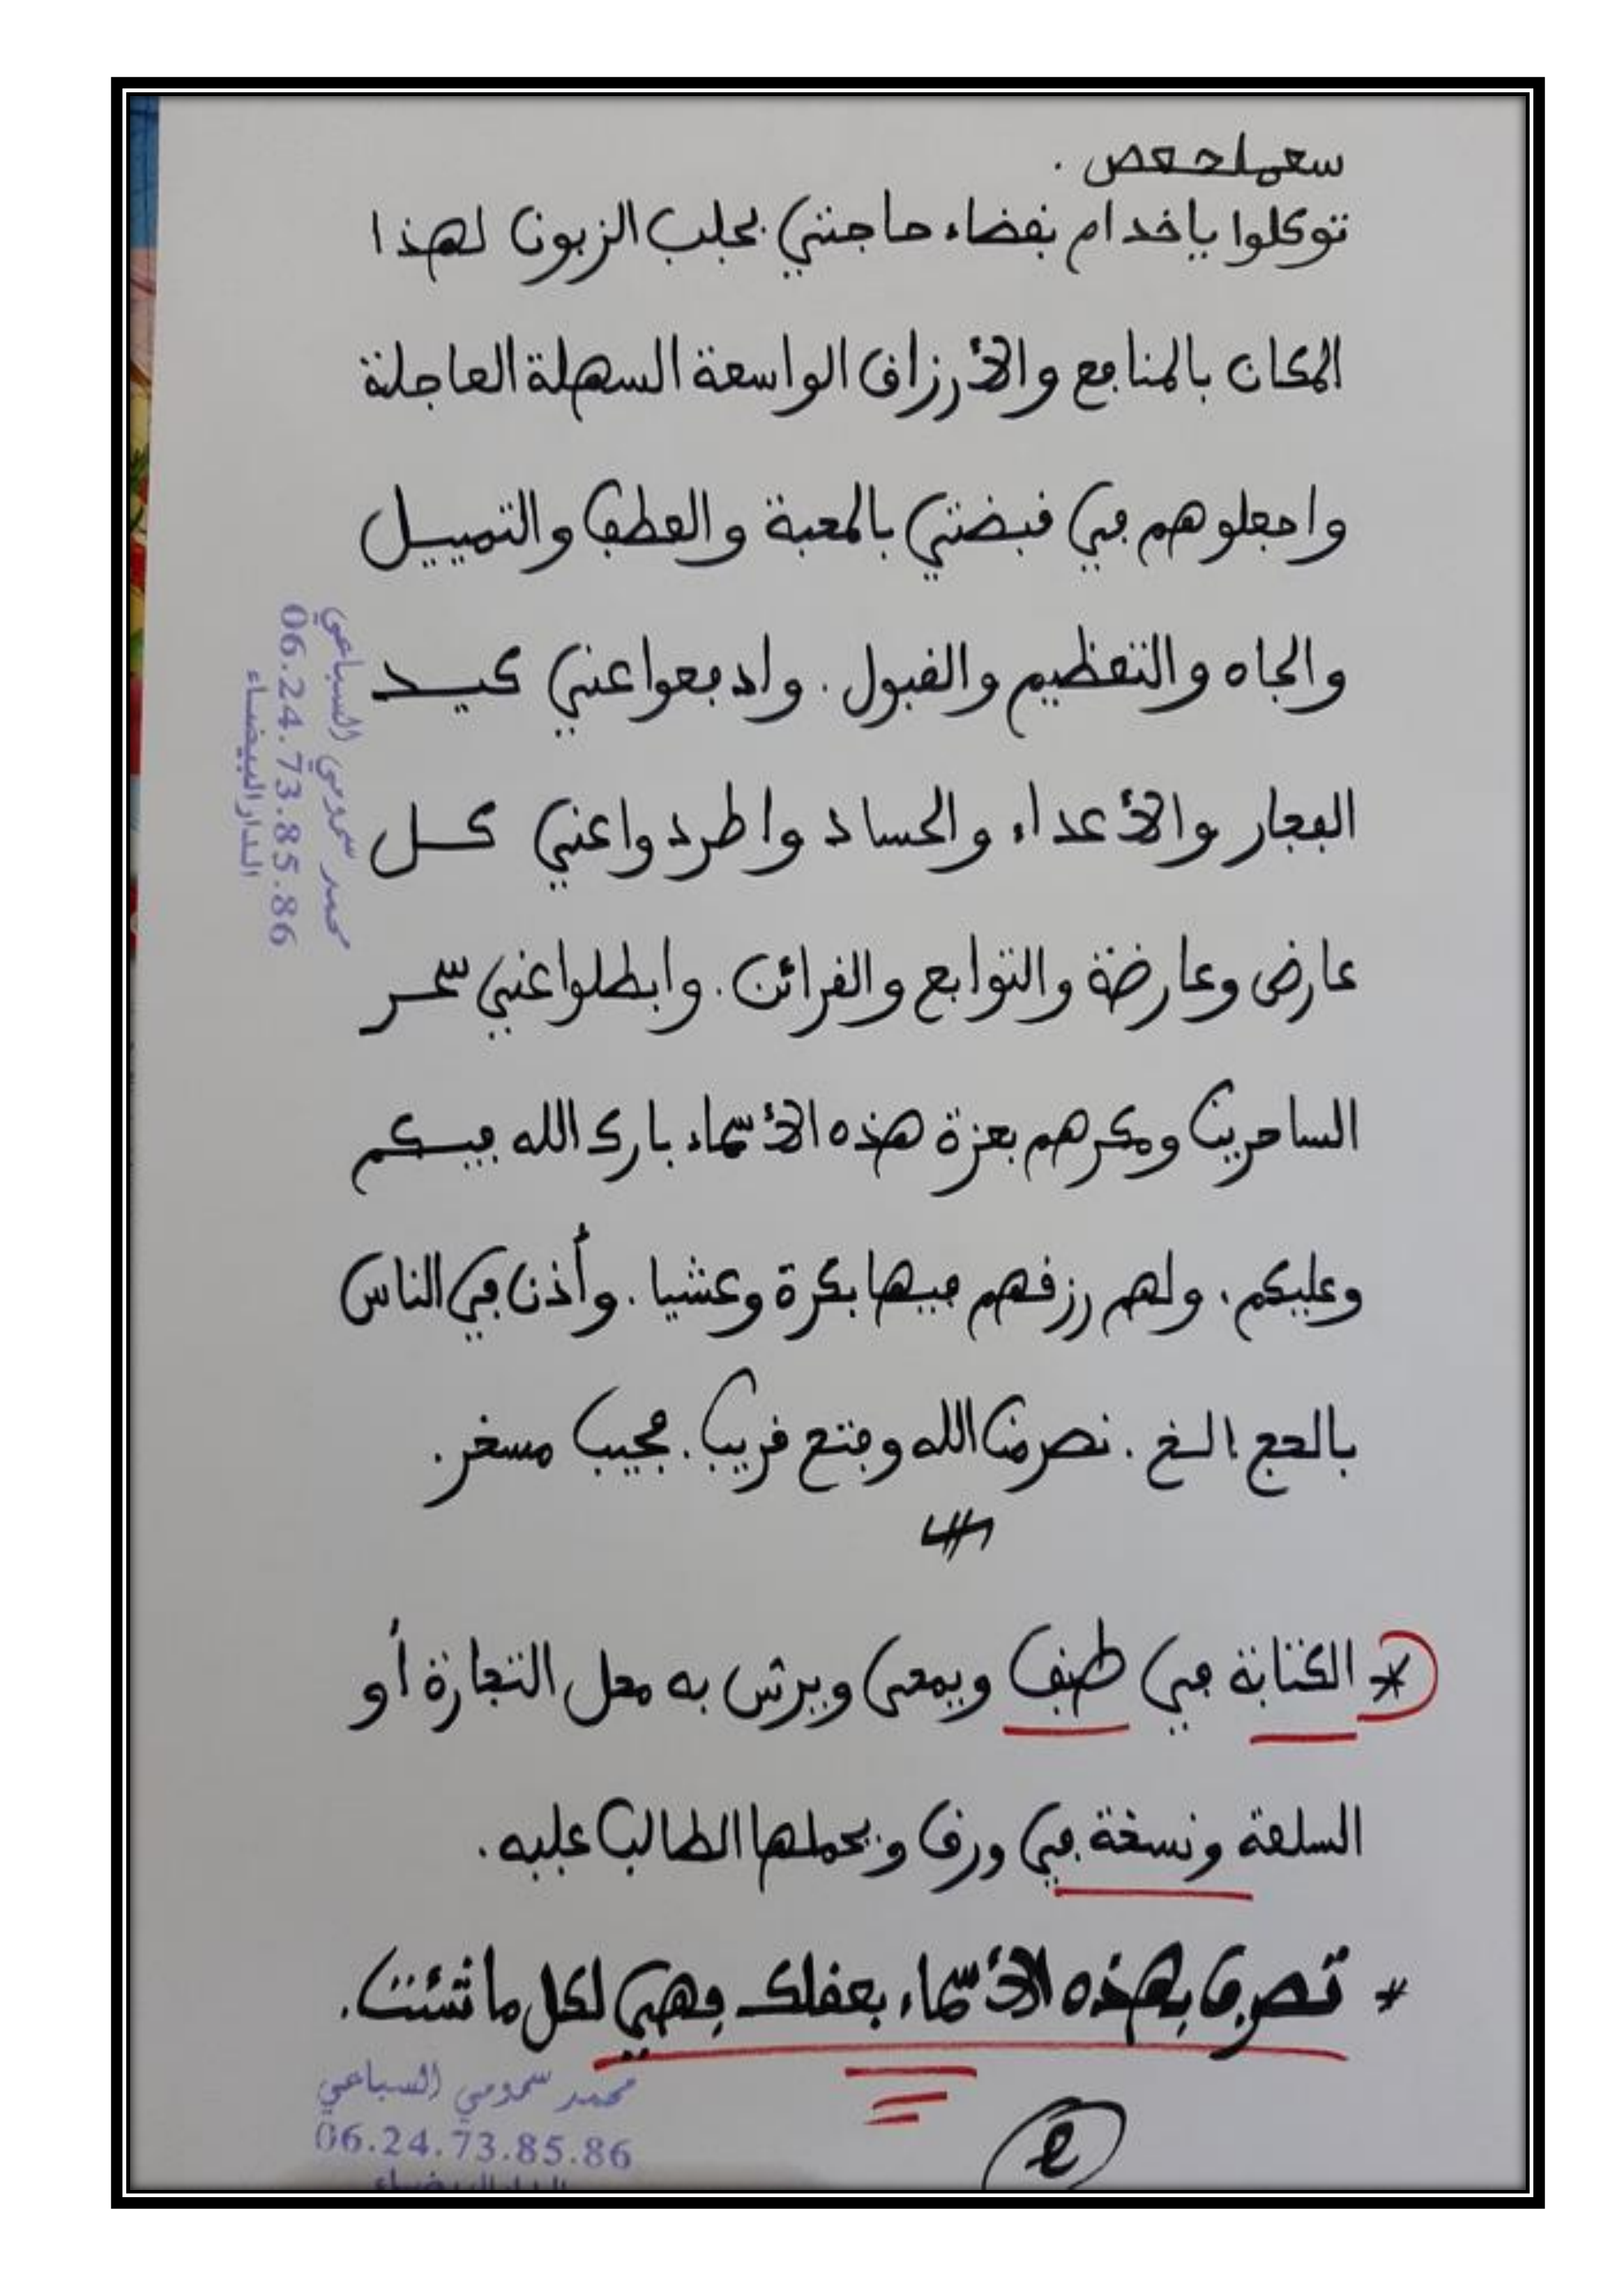 سعملحعص .
توكلوا ياخدام بقضاء حاجتي بجلب الزبون لهذا
المكان بالمنافع والأرزاق الواسعة السهلة العاجلة
واجعلوهم في قبضتي بالمحبة والعطف والتمييل
والجاه والتعظيم والقبول . وادفعوا عني كيد
الفجار والأعداء والحساد واطردوا عني كل
عارض وعارضة والتوابع والقرائن . وابطلوا عني سحر
الساحرين ومكرهم بعزة هذه الأسماء بارك الله فيكم
وعليكم . ولهم رزقهم فيها بكرة وعشيا . وأذن في الناس
بالحج الخ . نصر من الله وفتح قريب . مجيب مسخر .
* الكتابة في طبق ويمحى ويرش به محل التجارة أو
السلعة ونسخة في ورق ويحملها الطالب عليه .
* تصرف بهذه الأسماء بعقلك فهي لكل ما شئت .
محمد سمومي السباعي
06.24.73.85.86
الدار البيضاء
محمد سمومي السباعي
06.24.73.85.86
الدار البيضاء